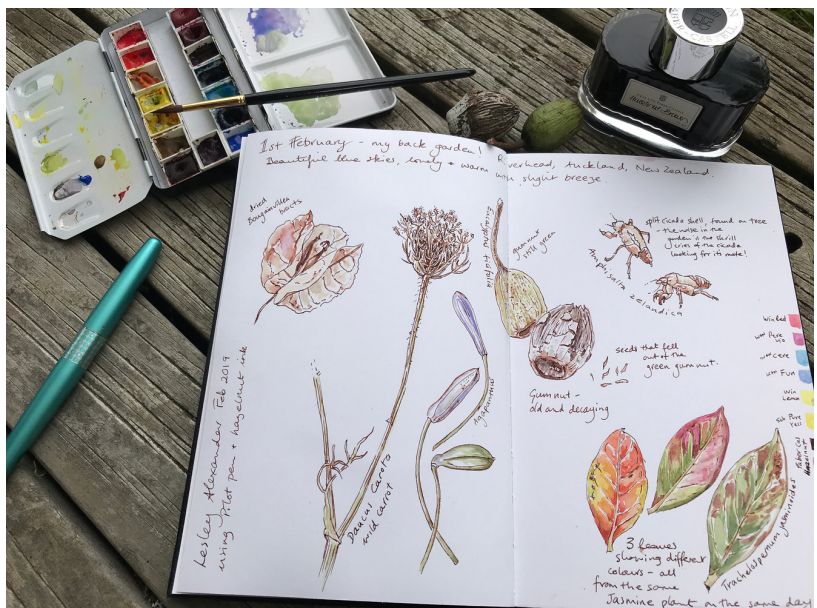 1st February - my back garden! Riverhead, Auckland, New Zealand.
Beautiful blue skies, lovely + warm with slight breeze.
dried
Bougainvillea
bracts
Daucus Carota
wild carrot
Agapanthus
Lesley Alexander Feb 2019
using Pilot pen + hazelnut ink
gumnut
still green
Gumnut -
old and decaying
seeds that fell
out of the
green gumnut.
split cicada shell, found on tree
- the noise in the
garden is the shrill
cries of the cicada
looking for its mate!
Amphipsalta zelandica
Win Red
Win
Lemon
3 leaves
showing different
colours - all
from the same
Jasmine plant on the same day
Trachelospermum jasminoides